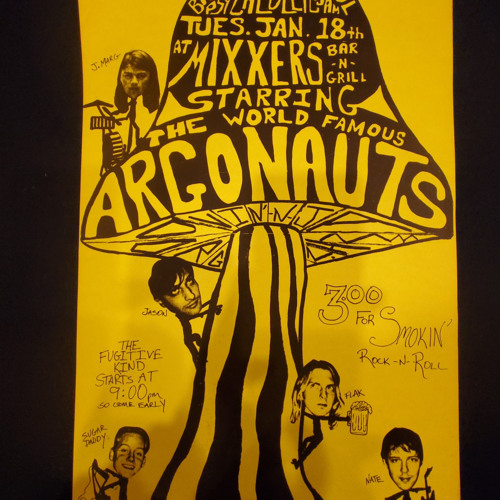 TUES. JAN. 18th
AT MIXXERS BAR
-N-
GRILL
STARRING
THE WORLD FAMOUS
ARGONAUTS
J. MARG
JASON
3.00
FOR SMOKIN'
ROCK-N-ROLL
THE
FUGITIVE
KIND
STARTS AT
9:00pm
SO COME EARLY
FLAK
SUGAR
DADDY
NATE